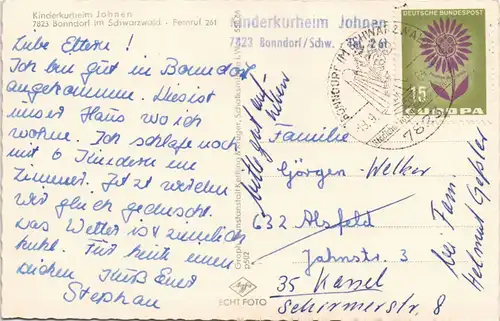 Kinderkurheim Johnen
7823 Bonndorf im Schwarzwald - Fernruf 261
Liebe Eltern!
Ich bin gut in Bonndorf
angekommen. Dies ist
unser Haus wo ich
wohne. Ich schlafe noch
mit 6 Kindern im
Zimmer. Jetzt werden
wir gleich geduscht.
Das Wetter ist ziemlich
kühl. Für heute einen
dicken Kuß Euer
Stephan
Kinderkurheim Johnen
7823 Bonndorf/Schw. Tel. 261
bitte gut auf
heben
Familie
Görgen-Welker
632 Alsfeld
Jahnstr. 3
35 Kassel
Schirmerstr. 8
bei Fam.
Helmut Geßler
DEUTSCHE BUNDESPOST
15
EUROPA
BONNDORF IM SCHWARZWALD
7823
ECHT FOTO